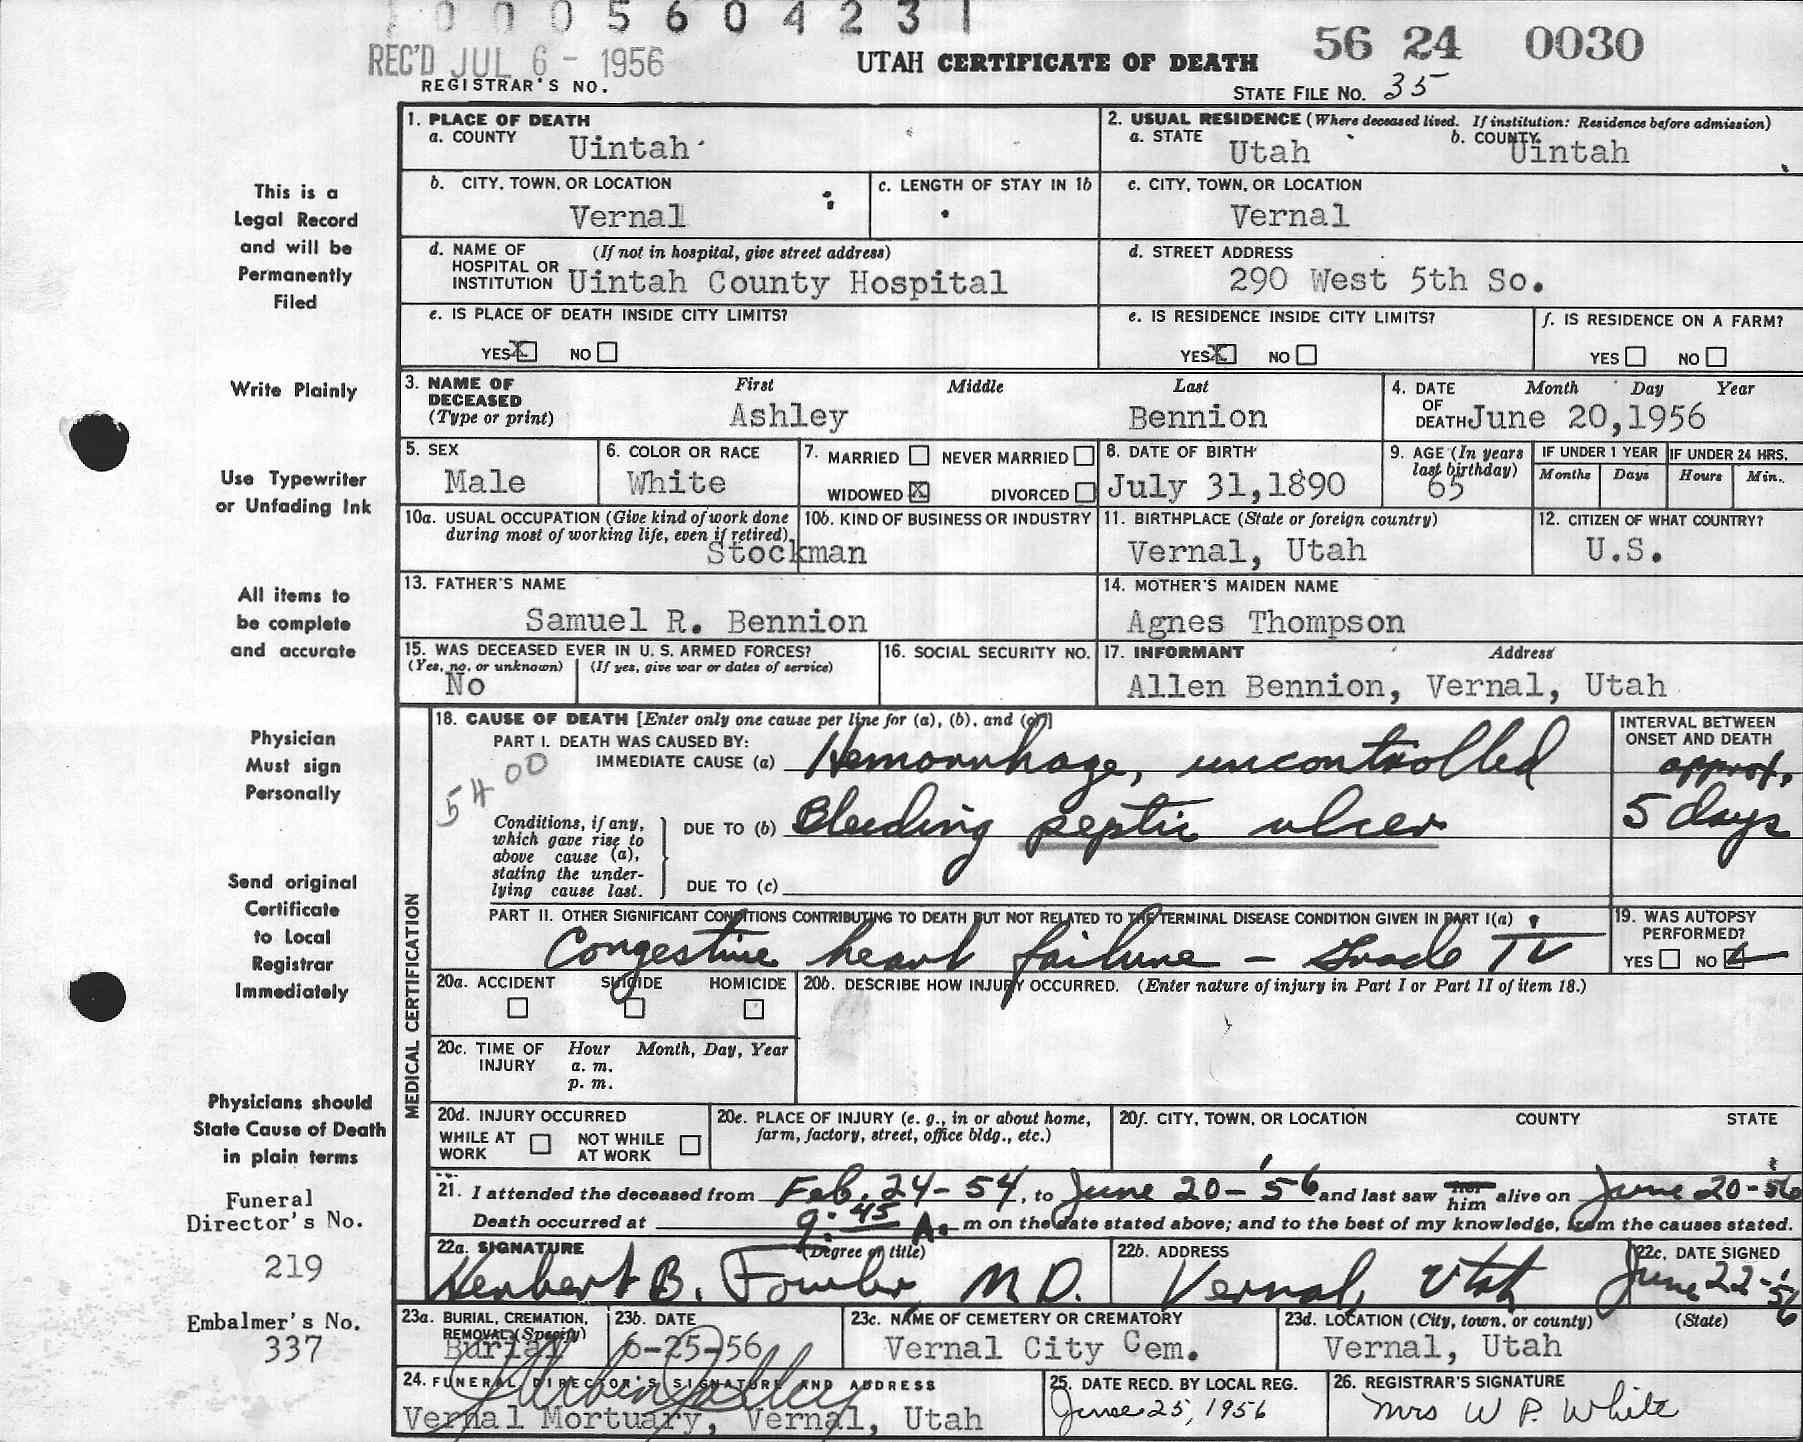 0 0 0 5 6 0 4 2 3 1
REC'D JUL 6 - 1956
UTAH CERTIFICATE OF DEATH
56 24 0030
REGISTRAR'S NO.
STATE FILE NO. 35
This is a
Legal Record
and will be
Permanently
Filed
Write Plainly
Use Typewriter
or Unfading Ink
All items to
be complete
and accurate
Physician
Must sign
Personally
Send original
Certificate
to Local
Registrar
Immediately
Physicians should
State Cause of Death
in plain terms
Funeral
Director's No.
219
Embalmer's No.
337
1. PLACE OF DEATH
a. COUNTY Uintah
2. USUAL RESIDENCE (Where deceased lived. If institution: Residence before admission)
a. STATE Utah b. COUNTY Uintah
b. CITY, TOWN, OR LOCATION
Vernal
c. LENGTH OF STAY IN 1b
c. CITY, TOWN, OR LOCATION
Vernal
d. NAME OF (If not in hospital, give street address)
HOSPITAL OR
INSTITUTION Uintah County Hospital
d. STREET ADDRESS
290 West 5th So.
e. IS PLACE OF DEATH INSIDE CITY LIMITS?
YES X NO
e. IS RESIDENCE INSIDE CITY LIMITS?
YES X NO
f. IS RESIDENCE ON A FARM?
YES NO
3. NAME OF DECEASED (Type or print)
First Middle Last
Ashley Bennion
4. DATE OF DEATH Month Day Year
June 20,1956
5. SEX
Male
6. COLOR OR RACE
White
7. MARRIED NEVER MARRIED
WIDOWED X DIVORCED
8. DATE OF BIRTH
July 31,1890
9. AGE (In years last birthday)
65
IF UNDER 1 YEAR
Months Days
IF UNDER 24 HRS.
Hours Min.
10a. USUAL OCCUPATION (Give kind of work done
during most of working life, even if retired)
Stockman
10b. KIND OF BUSINESS OR INDUSTRY
11. BIRTHPLACE (State or foreign country)
Vernal, Utah
12. CITIZEN OF WHAT COUNTRY?
U.S.
13. FATHER'S NAME
Samuel R. Bennion
14. MOTHER'S MAIDEN NAME
Agnes Thompson
15. WAS DECEASED EVER IN U. S. ARMED FORCES?
(Yes, no, or unknown) (If yes, give war or dates of service)
No
16. SOCIAL SECURITY NO.
17. INFORMANT Address
Allen Bennion, Vernal, Utah
MEDICAL CERTIFICATION
18. CAUSE OF DEATH [Enter only one cause per line for (a), (b), and (c)]
PART I. DEATH WAS CAUSED BY:
IMMEDIATE CAUSE (a) Hemorrhage, uncontrolled
5400
Conditions, if any,
which gave rise to
above cause (a),
stating the under-
lying cause last.
DUE TO (b) Bleeding peptic ulcer
DUE TO (c)
INTERVAL BETWEEN
ONSET AND DEATH
approx.
5 days
PART II. OTHER SIGNIFICANT CONDITIONS CONTRIBUTING TO DEATH BUT NOT RELATED TO THE TERMINAL DISEASE CONDITION GIVEN IN PART I(a)
Congestive heart failure - Grade IV
19. WAS AUTOPSY
PERFORMED?
YES NO
20a. ACCIDENT SUICIDE HOMICIDE
20b. DESCRIBE HOW INJURY OCCURRED. (Enter nature of injury in Part I or Part II of item 18.)
20c. TIME OF INJURY Hour Month, Day, Year
a. m.
p. m.
20d. INJURY OCCURRED
WHILE AT WORK NOT WHILE AT WORK
20e. PLACE OF INJURY (e. g., in or about home,
farm, factory, street, office bldg., etc.)
20f. CITY, TOWN, OR LOCATION COUNTY STATE
21. I attended the deceased from Feb. 24-54, to June 20-'56 and last saw her him alive on June 20-56
Death occurred at 9:45 A. m on the date stated above; and to the best of my knowledge, from the causes stated.
22a. SIGNATURE (Degree or title)
Herbert B. Fowler M.D.
22b. ADDRESS
Vernal, Utah
22c. DATE SIGNED
June 22-'56
23a. BURIAL, CREMATION,
REMOVAL (Specify)
Burial
23b. DATE
6-25-56
23c. NAME OF CEMETERY OR CREMATORY
Vernal City Cem.
23d. LOCATION (City, town, or county) (State)
Vernal, Utah
24. FUNERAL DIRECTOR'S SIGNATURE AND ADDRESS
Vernal Mortuary, Vernal, Utah
25. DATE RECD. BY LOCAL REG.
June 25, 1956
26. REGISTRAR'S SIGNATURE
Mrs W P. White